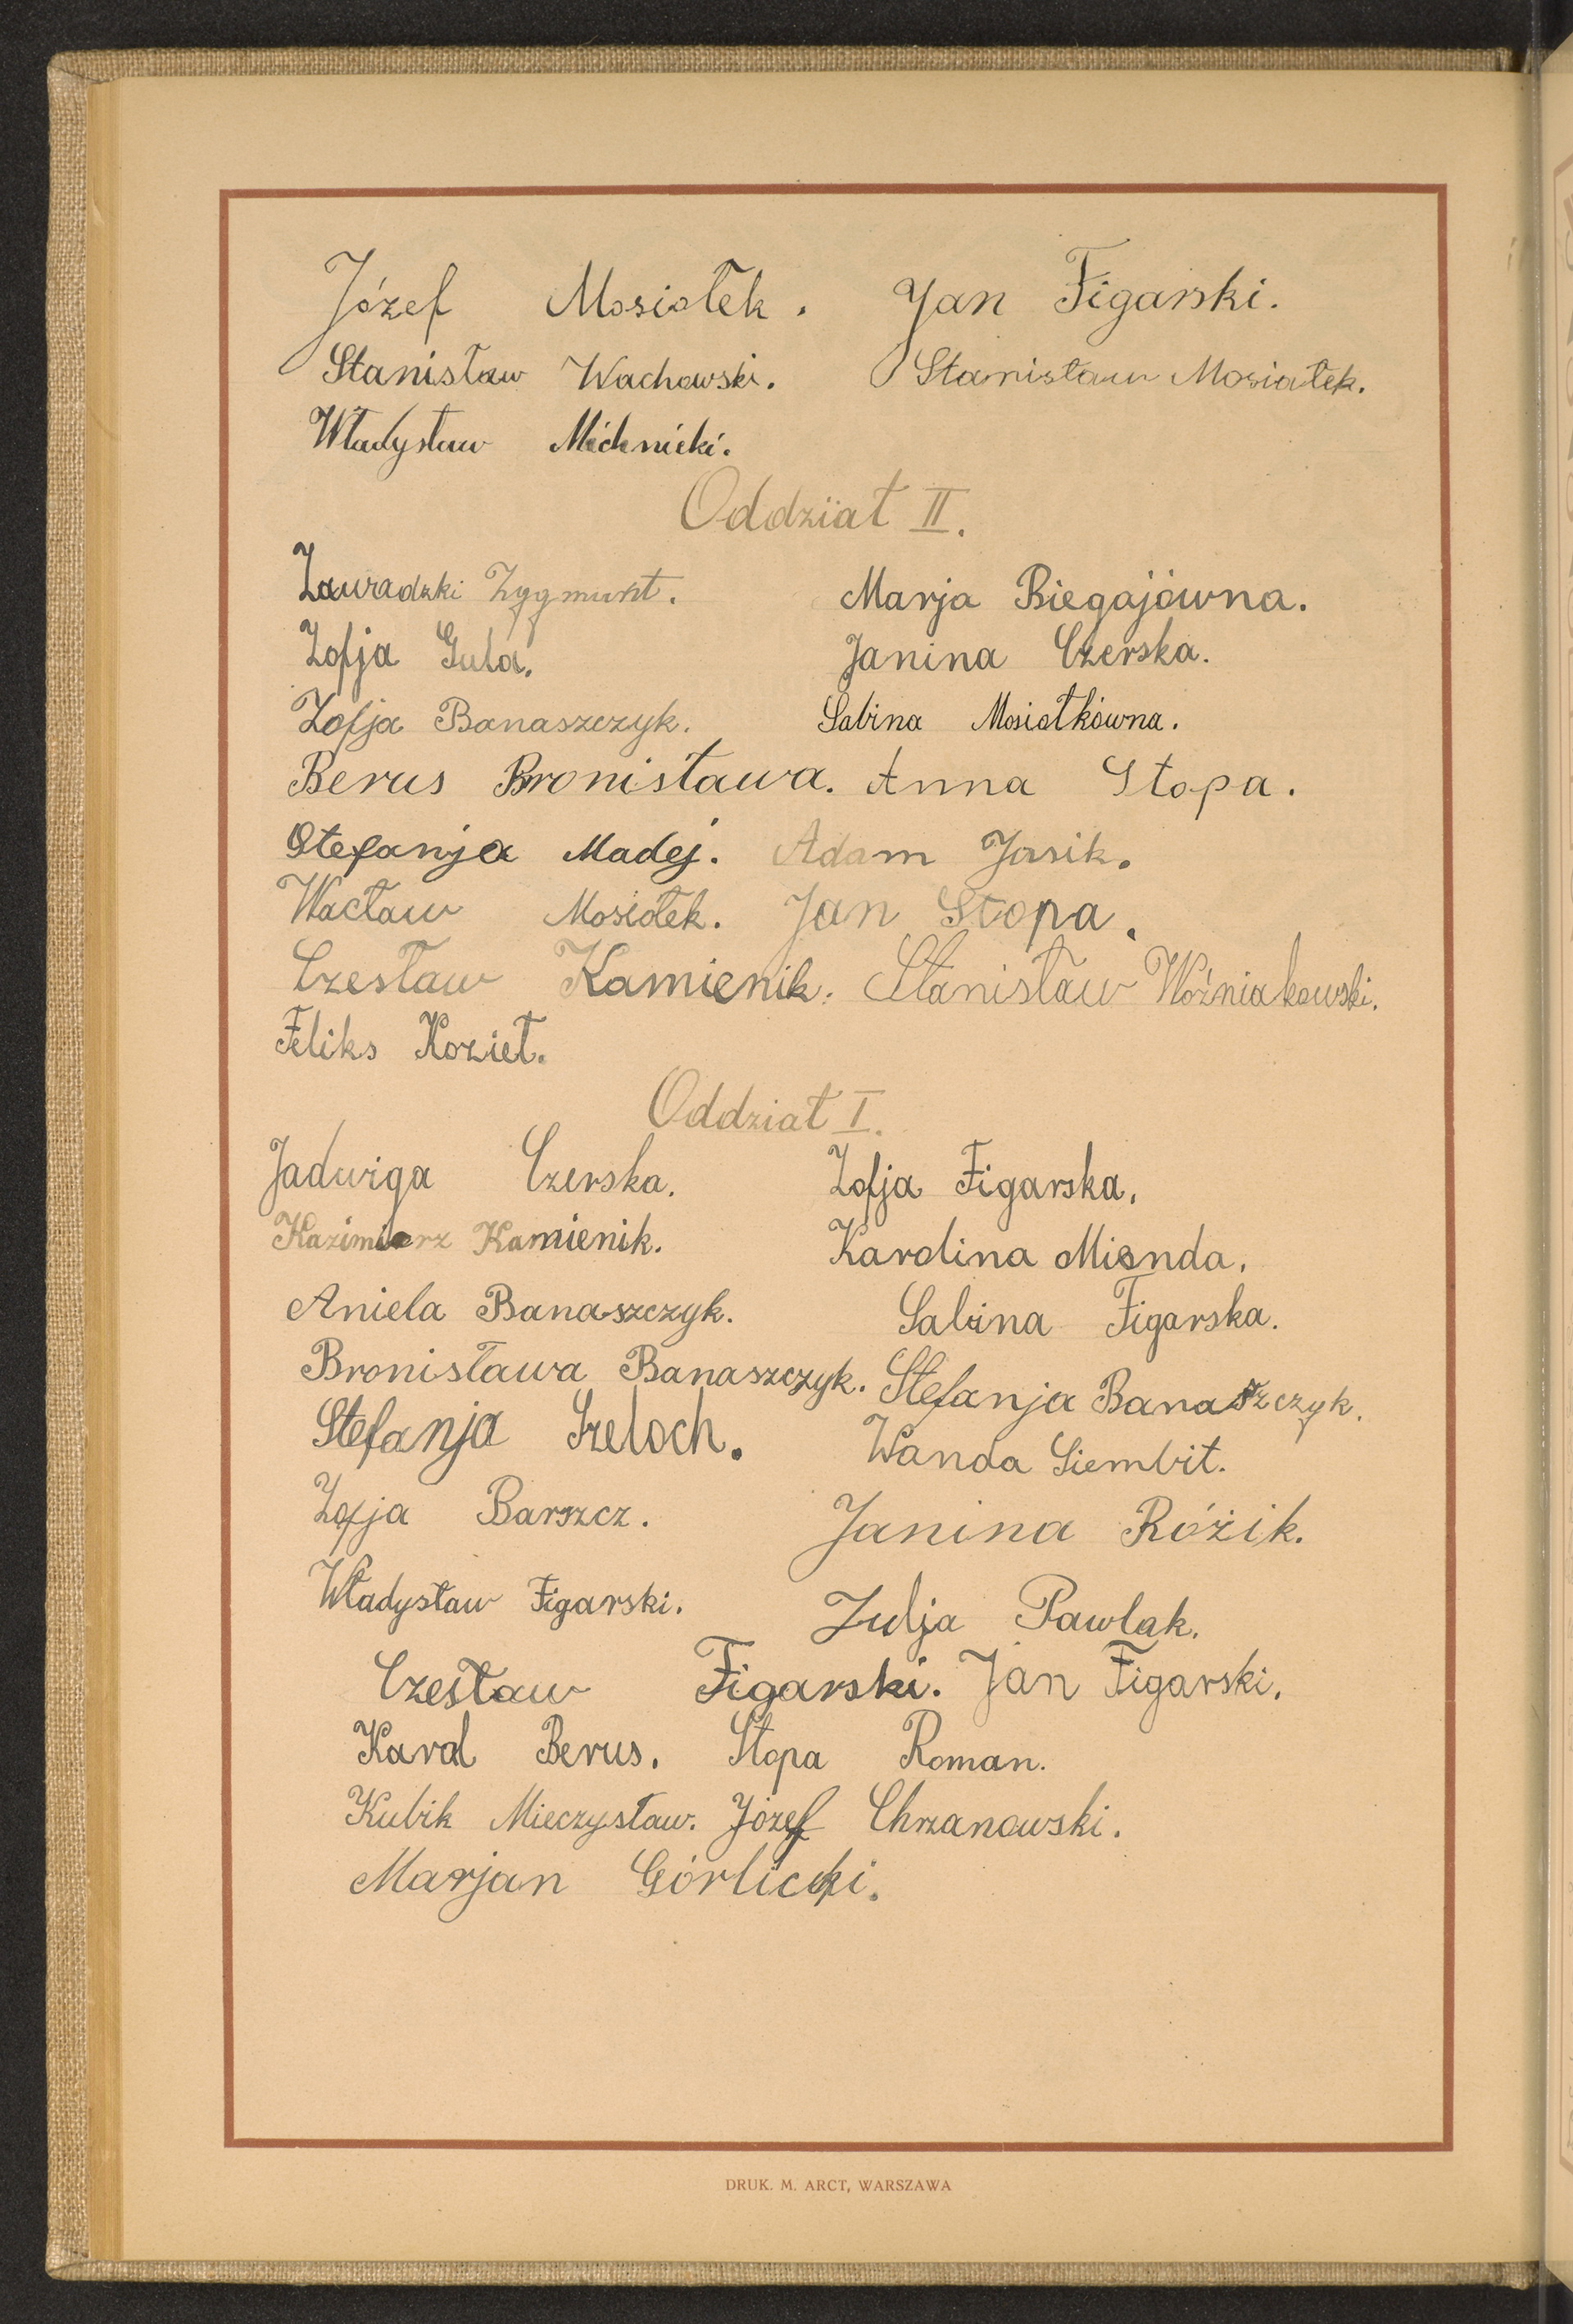 Józef Mosiołek. Jan Figarski.
Stanisław Wachowski. Stanisław Mosiałek.
Władysław Michnicki.
Oddział II.
Zawradzki Zygmunt. Marja Biegajówna.
Zofja Gula. Janina Czerska.
Zofja Banaszczyk. Sabina Mosiołkówna.
Berus Bronisława. Anna Stopa.
Stefanja Madej. Adam Jasik.
Wacław Mosiołek. Jan Stopa.
Czesław Kamienik. Stanisław Woźniakowski.
Feliks Kozieł.
Oddział I.
Jadwiga Czerska. Zofja Figarska.
Kazimierz Kamienik. Karolina Mienda.
Aniela Banaszczyk. Sabina Figarska.
Bronisława Banaszczyk. Stefanja Banaszczyk.
Stefanja Szeloch. Wanda Siembit.
Zofja Barszcz. Janina Róźik.
Władysław Figarski. Julja Pawlak.
Czesław Figarski. Jan Figarski.
Karol Berus. Stopa Roman.
Kubik Mieczysław. Józef Chrzanowski.
Marjan Górlicki.
DRUK. M. ARCT, WARSZAWA